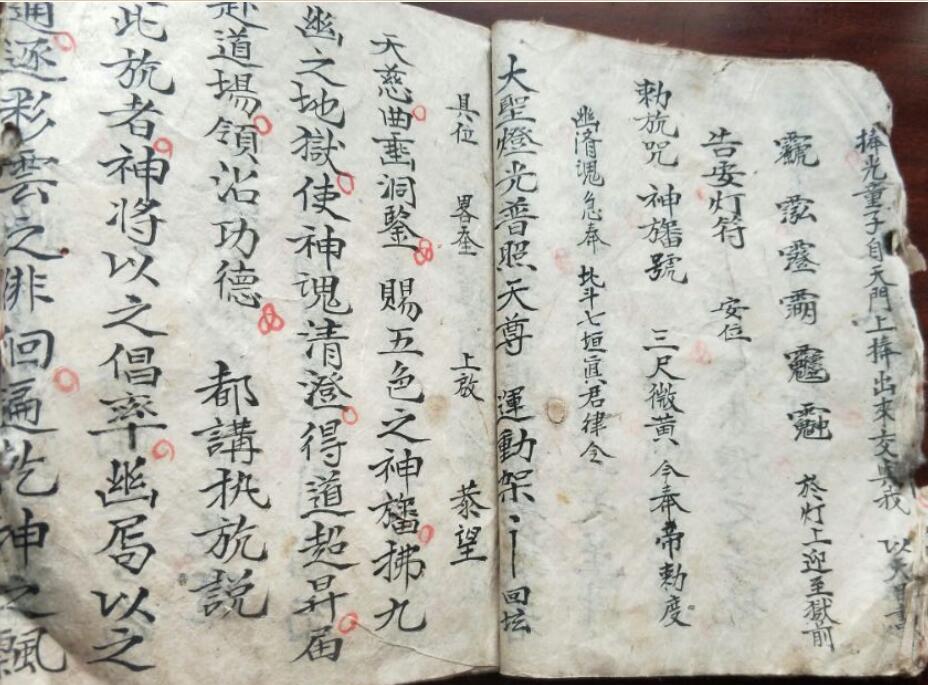 捧光童子自天門上捧出來交與我 以天目
於灯上迎至獄前
告安灯符 安位
勅旂咒 神旛號 三尺微黄 今奉帝勅度
幽清魂 急奉 北斗七垣眞君律令
大聖燈光普照天尊 運動架 回坛
具位 畧奎 上放 恭望
天慈曲垂洞鑒 賜五色之神旛拂九
幽之地獄使神魂清澄得道超昇届
赴道場領沾功德 都講执旂説
此旂者神將以之倡率幽舄以之
通逐彩雲之徘徊遍乾坤之飄